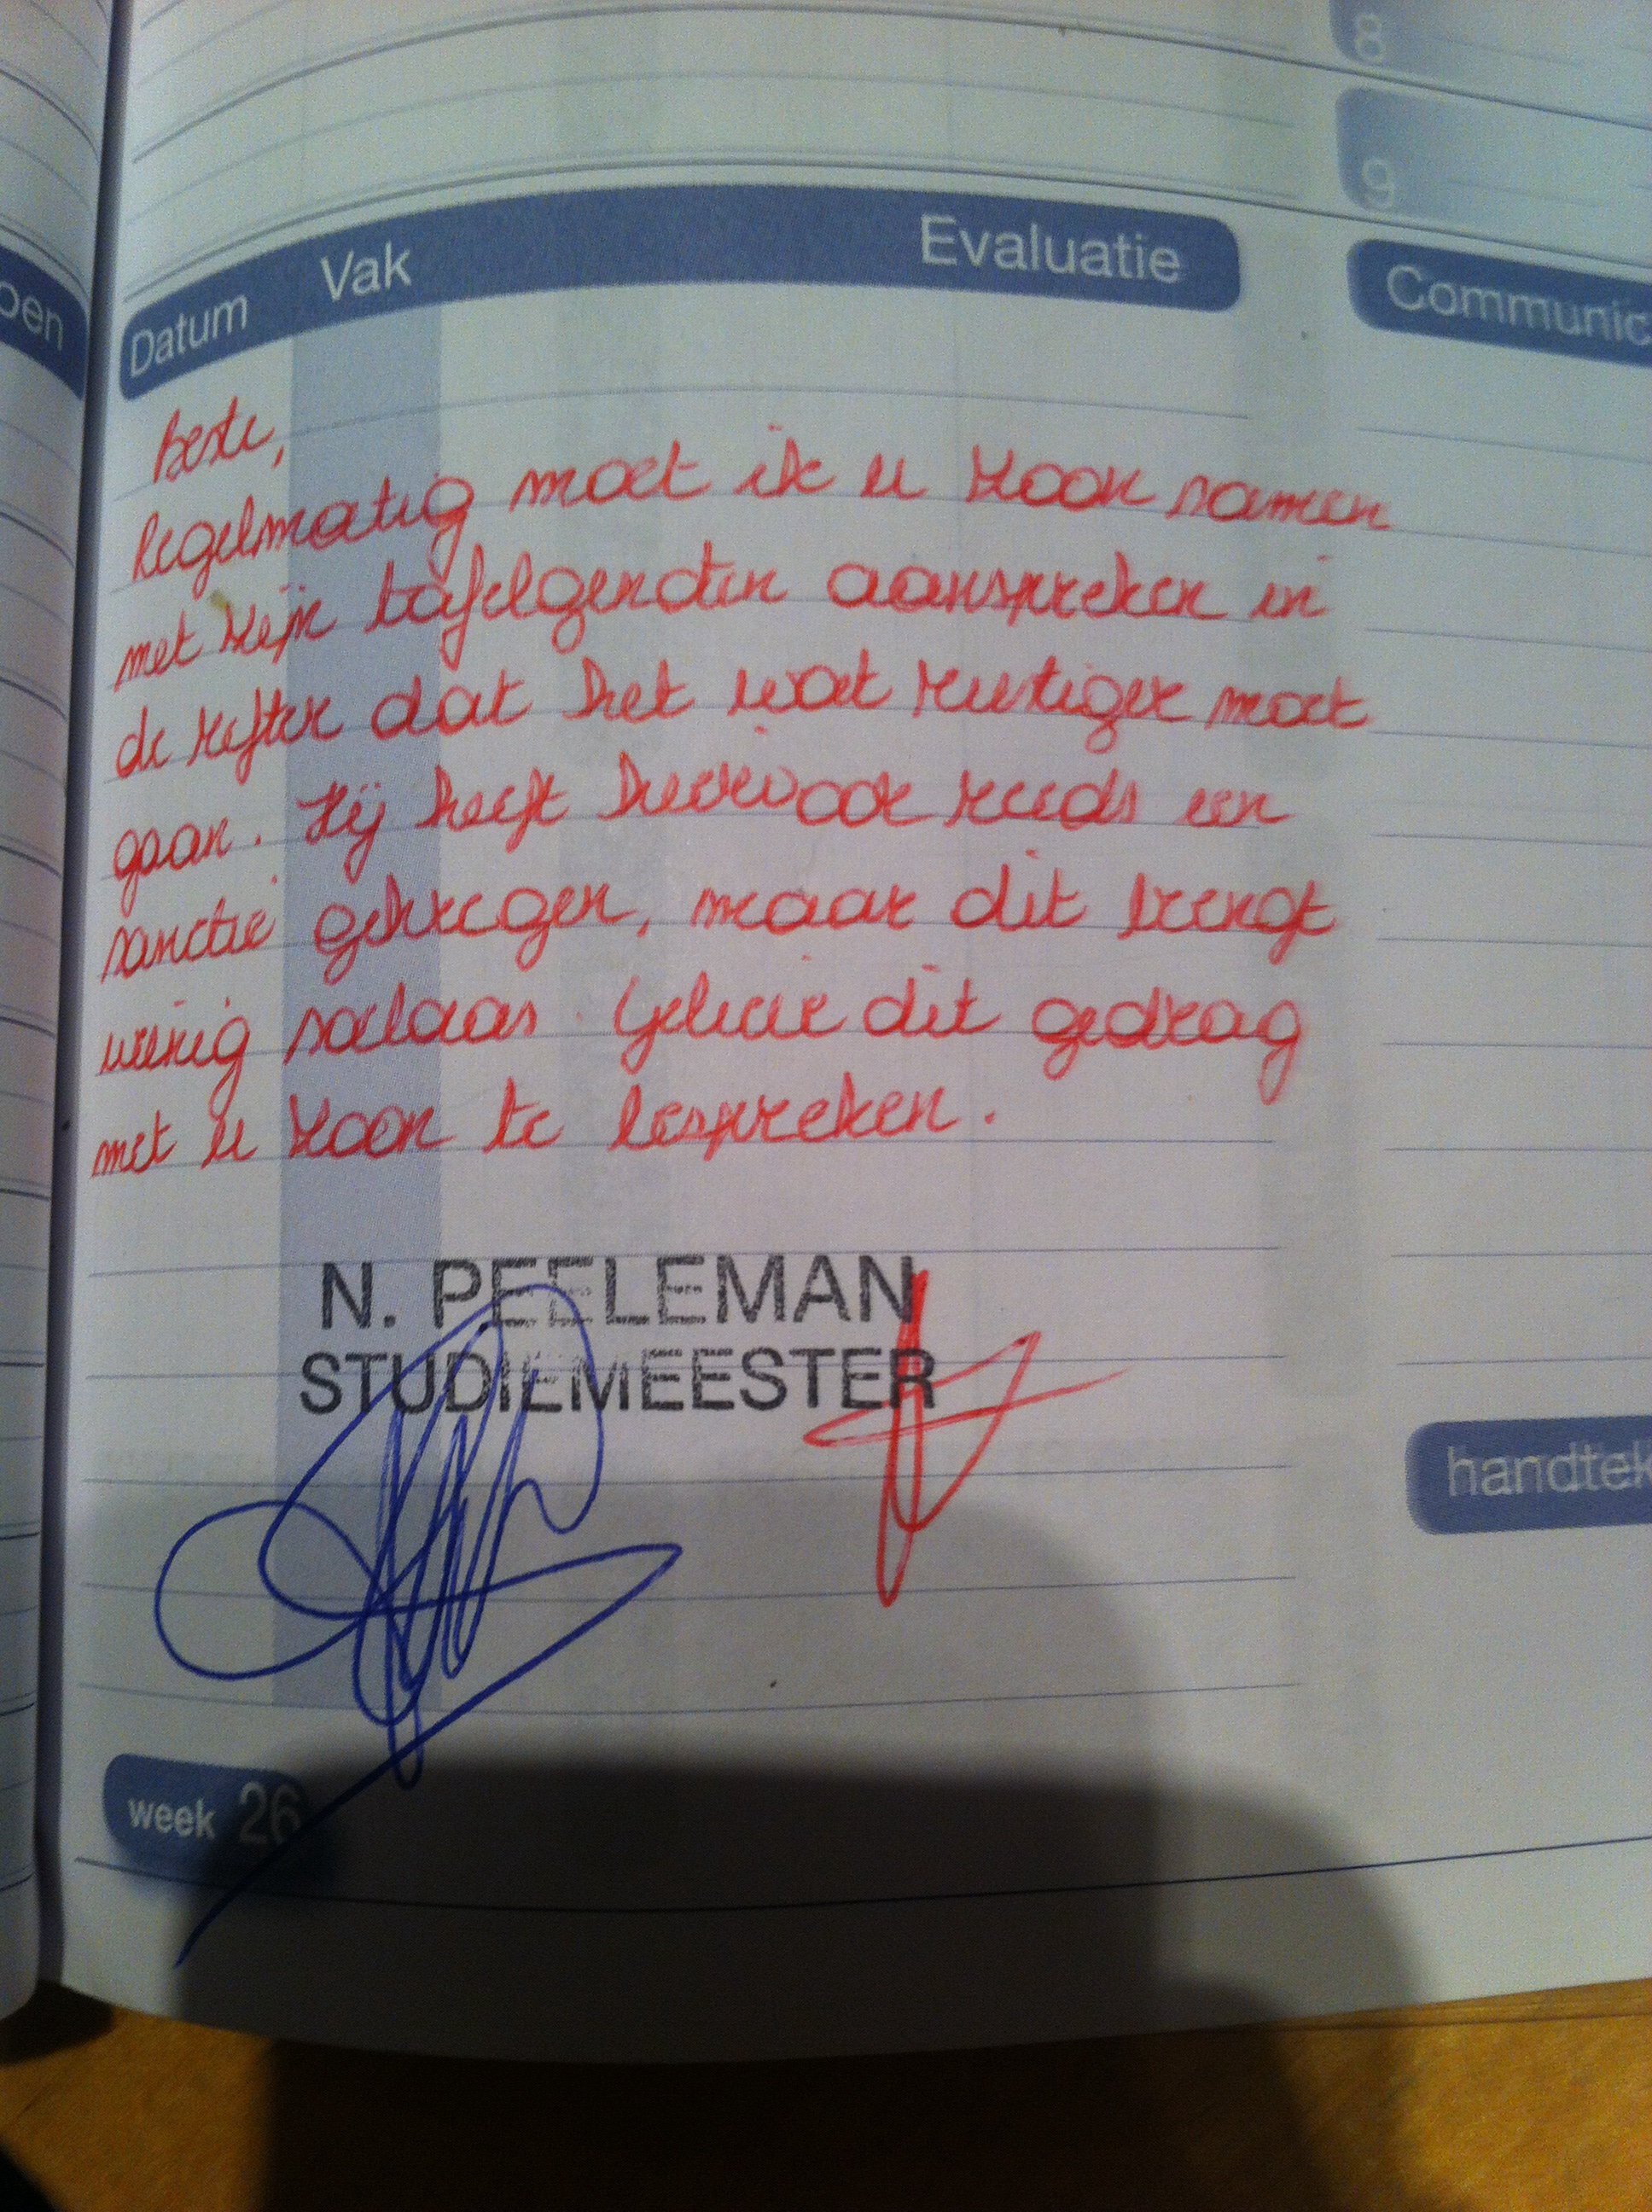 8
9
Datum Vak Evaluatie
Communic
oen
Beste,
Regelmatig moet ik u zoon samen
met zijn tafelgenoten aanspreken in
de refter dat het wat rustiger moet
gaan. Hij heeft hiervoor ook reeds een
sanctie gekregen, maar dit brengt
weinig soelaas. Gelieve dit gedrag
met u zoon te bespreken.
N. PEELEMAN
STUDIEMEESTER
handtek
week 26